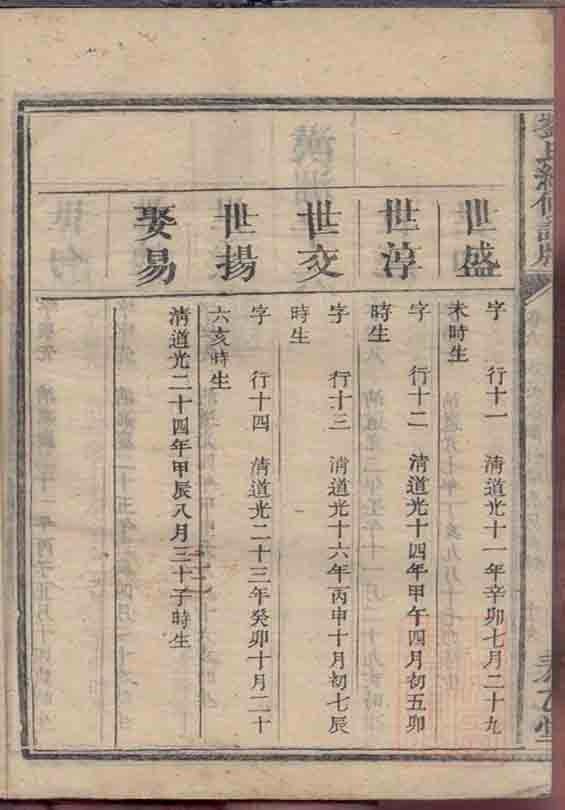 世盛
字 行十一 清道光十一年辛卯七月二十九
未時生
世淳
字 行十二 清道光十四年甲午四月初五卯
時生
世交
字 行十三 清道光十六年丙申十月初七辰
時生
世揚
字 行十四 清道光二十三年癸卯十月二十
六亥時生
娶易
清道光二十四年甲辰八月三十子時生